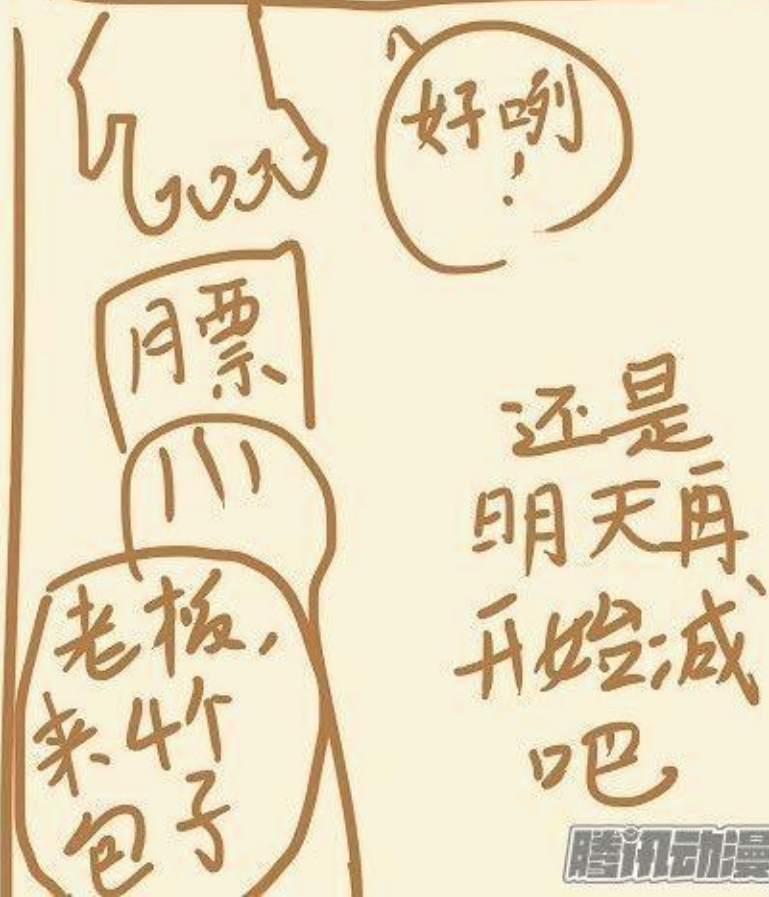 好咧
！
月票
老板，
来4个
包子
还是
明天再
开始减
吧
腾讯动漫